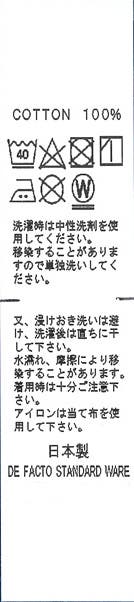 COTTON 100%
40
W
洗濯時は中性洗剤を使
用してください。
移染することがありま
すので単独洗いしてく
ださい。
又、浸けおき洗いは避
け、洗濯後は直ちに干
して下さい。
水濡れ、摩擦により移
染することがあります。
着用時は十分ご注意下
さい。
アイロンは当て布を使
用して下さい。
日本製
DE FACTO STANDARD WARE